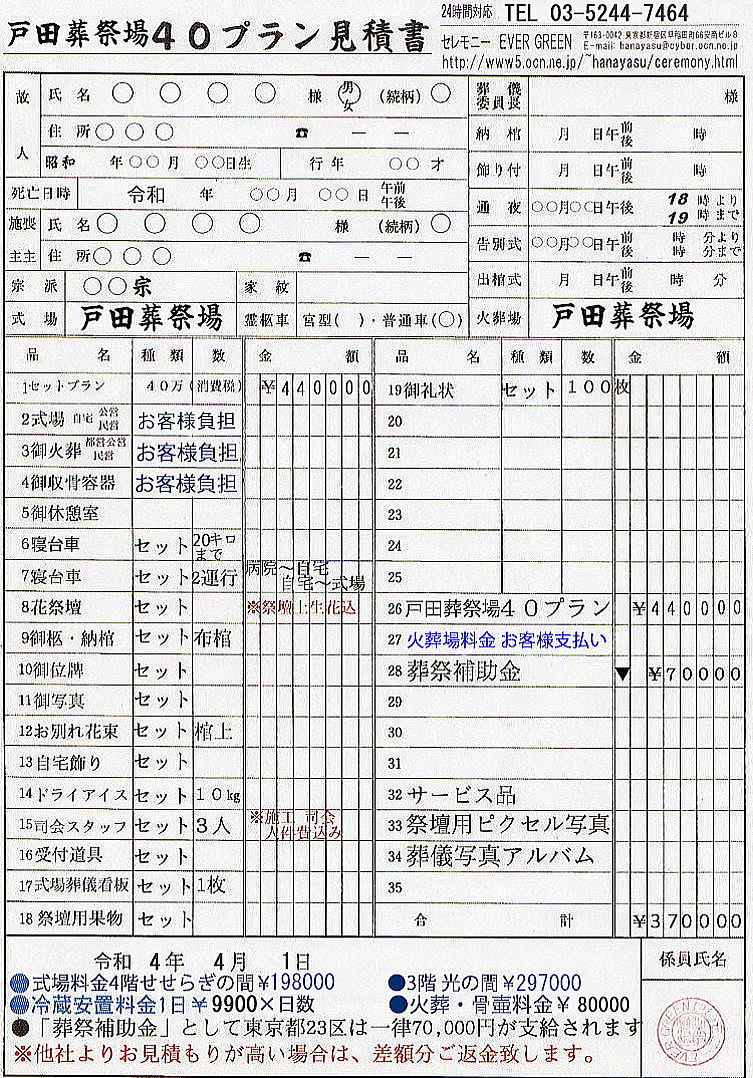 戸田葬祭場40プラン見積書
24時間対応 TEL 03-5244-7464
セレモニー EVER GREEN
〒163-0042 東京都新宿区早稲田町66安商ビル8
E-mail: hanayasu@cyber.ocn.ne.jp
http://www5.ocn.ne.jp/~hanayasu/ceremony.html
故人 氏名 〇 〇 〇 〇 様 男女 (続柄) 〇
住所 〇〇〇 ☎ ― ―
昭和 年〇〇月 〇〇日生 行年 〇〇才
死亡日時 令和 年 〇〇月 〇〇日 午前午後
施喪主主 氏名 〇 〇 〇 〇 様 (続柄) 〇
住所 〇〇〇 ☎ ― ―
宗派 〇〇宗 家紋
式場 戸田葬祭場 霊柩車 宮型( )・普通車(〇)
葬儀委員長 様
納棺 月 日午前後 時
飾り付 月 日午前後 時
通夜 〇〇月〇〇日午後 18時より 19時まで
告別式 〇〇月〇〇日午前後 時 分より 時 分まで
出棺式 月 日午前後 時 分
火葬場 戸田葬祭場
品名 種類 数 金額
1セットプラン 40万(消費税) ¥440000
2式場 自宅 公営 民営 お客様負担
3御火葬 都営公営 民営 お客様負担
4御収骨容器 お客様負担
5御休憩室
6寝台車 セット 20キロまで
7寝台車 セット 2運行 病院〜自宅 自宅〜式場
8花祭壇 セット ※祭壇上生花込
9御柩・納棺 セット 布棺
10御位牌 セット
11御写真 セット
12お別れ花束 セット 棺上
13自宅飾り セット
14ドライアイス セット 10kg
15司会スタッフ セット 3人 ※施工 司会 人件費込み
16受付道具 セット
17式場葬儀看板 セット 1枚
18祭壇用果物 セット
品名 種類 数 金額
19御礼状 セット 100枚
20
21
22
23
24
25
26戸田葬祭場40プラン ¥440000
27 火葬場料金 お客様支払い
28葬祭補助金 ▼ ¥70000
29
30
31
32サービス品
33祭壇用ピクセル写真
34葬儀写真アルバム
35
合計 ¥370000
令和 4年 4月 1日
係員氏名
●式場料金4階せせらぎの間¥198000 ●3階 光の間¥297000
●冷蔵安置料金1日¥9900×日数 ●火葬・骨壷料金¥80000
●「葬祭補助金」として東京都23区は一律70,000円が支給されます
※他社よりお見積もりが高い場合は、差額分ご返金致します。